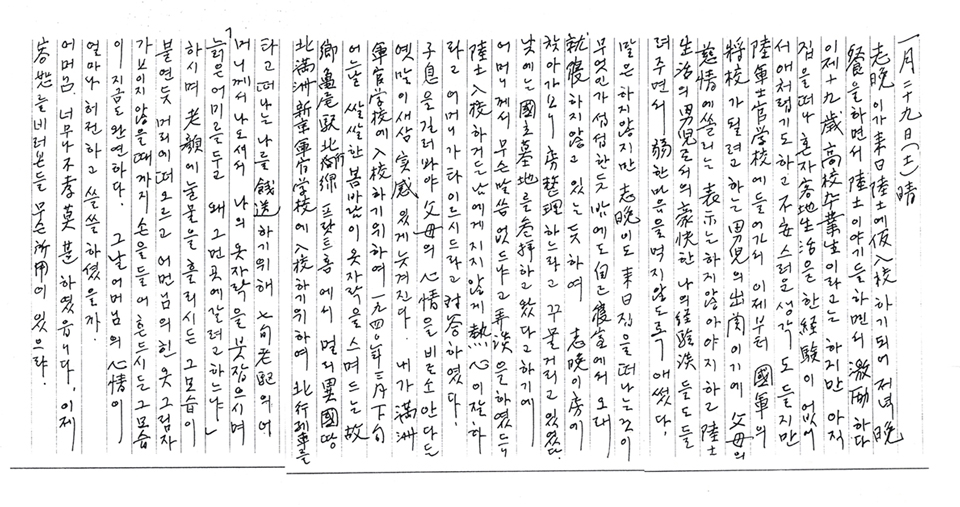 一月 二十九日 (土) 晴
志晚이가 来日 陸士에 仮入校하기 되어 저녁 晩
餐을 하면서 陸士이야기를 하면서 激励하다
이제 十九歲 高校卒業生이라고는 하지만 아직
집을 떠나 혼자 客地生活을 한 経験이 없어
서 애처럽기도 하고 不安스러운 생각도 들지만
陸軍士官学校에 들어가서 이제부터 國軍의
將校가 될려고 하는 男児의 出関이기에 父母의
慈情에 쏠리는 表示는 하지 않아야지 하고 陸士
生活의 男児로서의 豪快한 나의 経験談들도 들
려주면서 弱한 마음을 먹지 않도록 애썼다.
말은 하지 않지만 志晚이도 来日 집을 떠나는 것이
무엇인가 섭섭한듯 밤에도 自己 寢室에서 오래
就寢하지 않고 있는듯 하여 志晚이 房에
찾아가보니 房整理 하느라고 꾸물거리고 있었다.
낮에는 國立墓地를 參拝하고 왔다고 하기에
어머니께서 무슨 말씀 없드냐고 弄談을 하였드니
陸士 入校하거든 남에게 지지않게 熱心이 잘 하
라고 어머니가 타이르시드라고 対答하였다.
子息을 길러봐야 父母의 心情을 비로소 안다는
옛말이 새삼 実感있게 느껴진다 내가 満洲
軍官学校에 入校하기 위하여 一九四0年 三月 下旬
어느날 쌀쌀한 봄바람이 옷자락을 스며드는 故
鄕 亀尾駅 北行線 프랏트홈에서 멀리 異國땅
北満洲 新京軍官学校에 入校하기 위하여 北行列車를
타고 떠나는 나를 餞送하기 위해 七旬 老軀의 어
머니께서 나오셔서 나의 옷자락을 붓잡으시며
「늙은 어미를 두고 왜 그 먼 곳에 갈려고 하느냐」
하시며 老顔에 눈물을 흘리시든 그 모습이
불연듯 머리에 떠오르고 어머님의 힌 옷 그림자
가 보이지 않을 때까지 손을 들어 흔드시든 그 모습
이 지금도 완연하다. 그날 어머님의 心情이
얼마나 허전하고 쓸쓸하셨을까.
어머님, 너무나 不孝莫甚하였읍니다. 이제
容恕를 비러본들 무슨 所用이 있으랴.